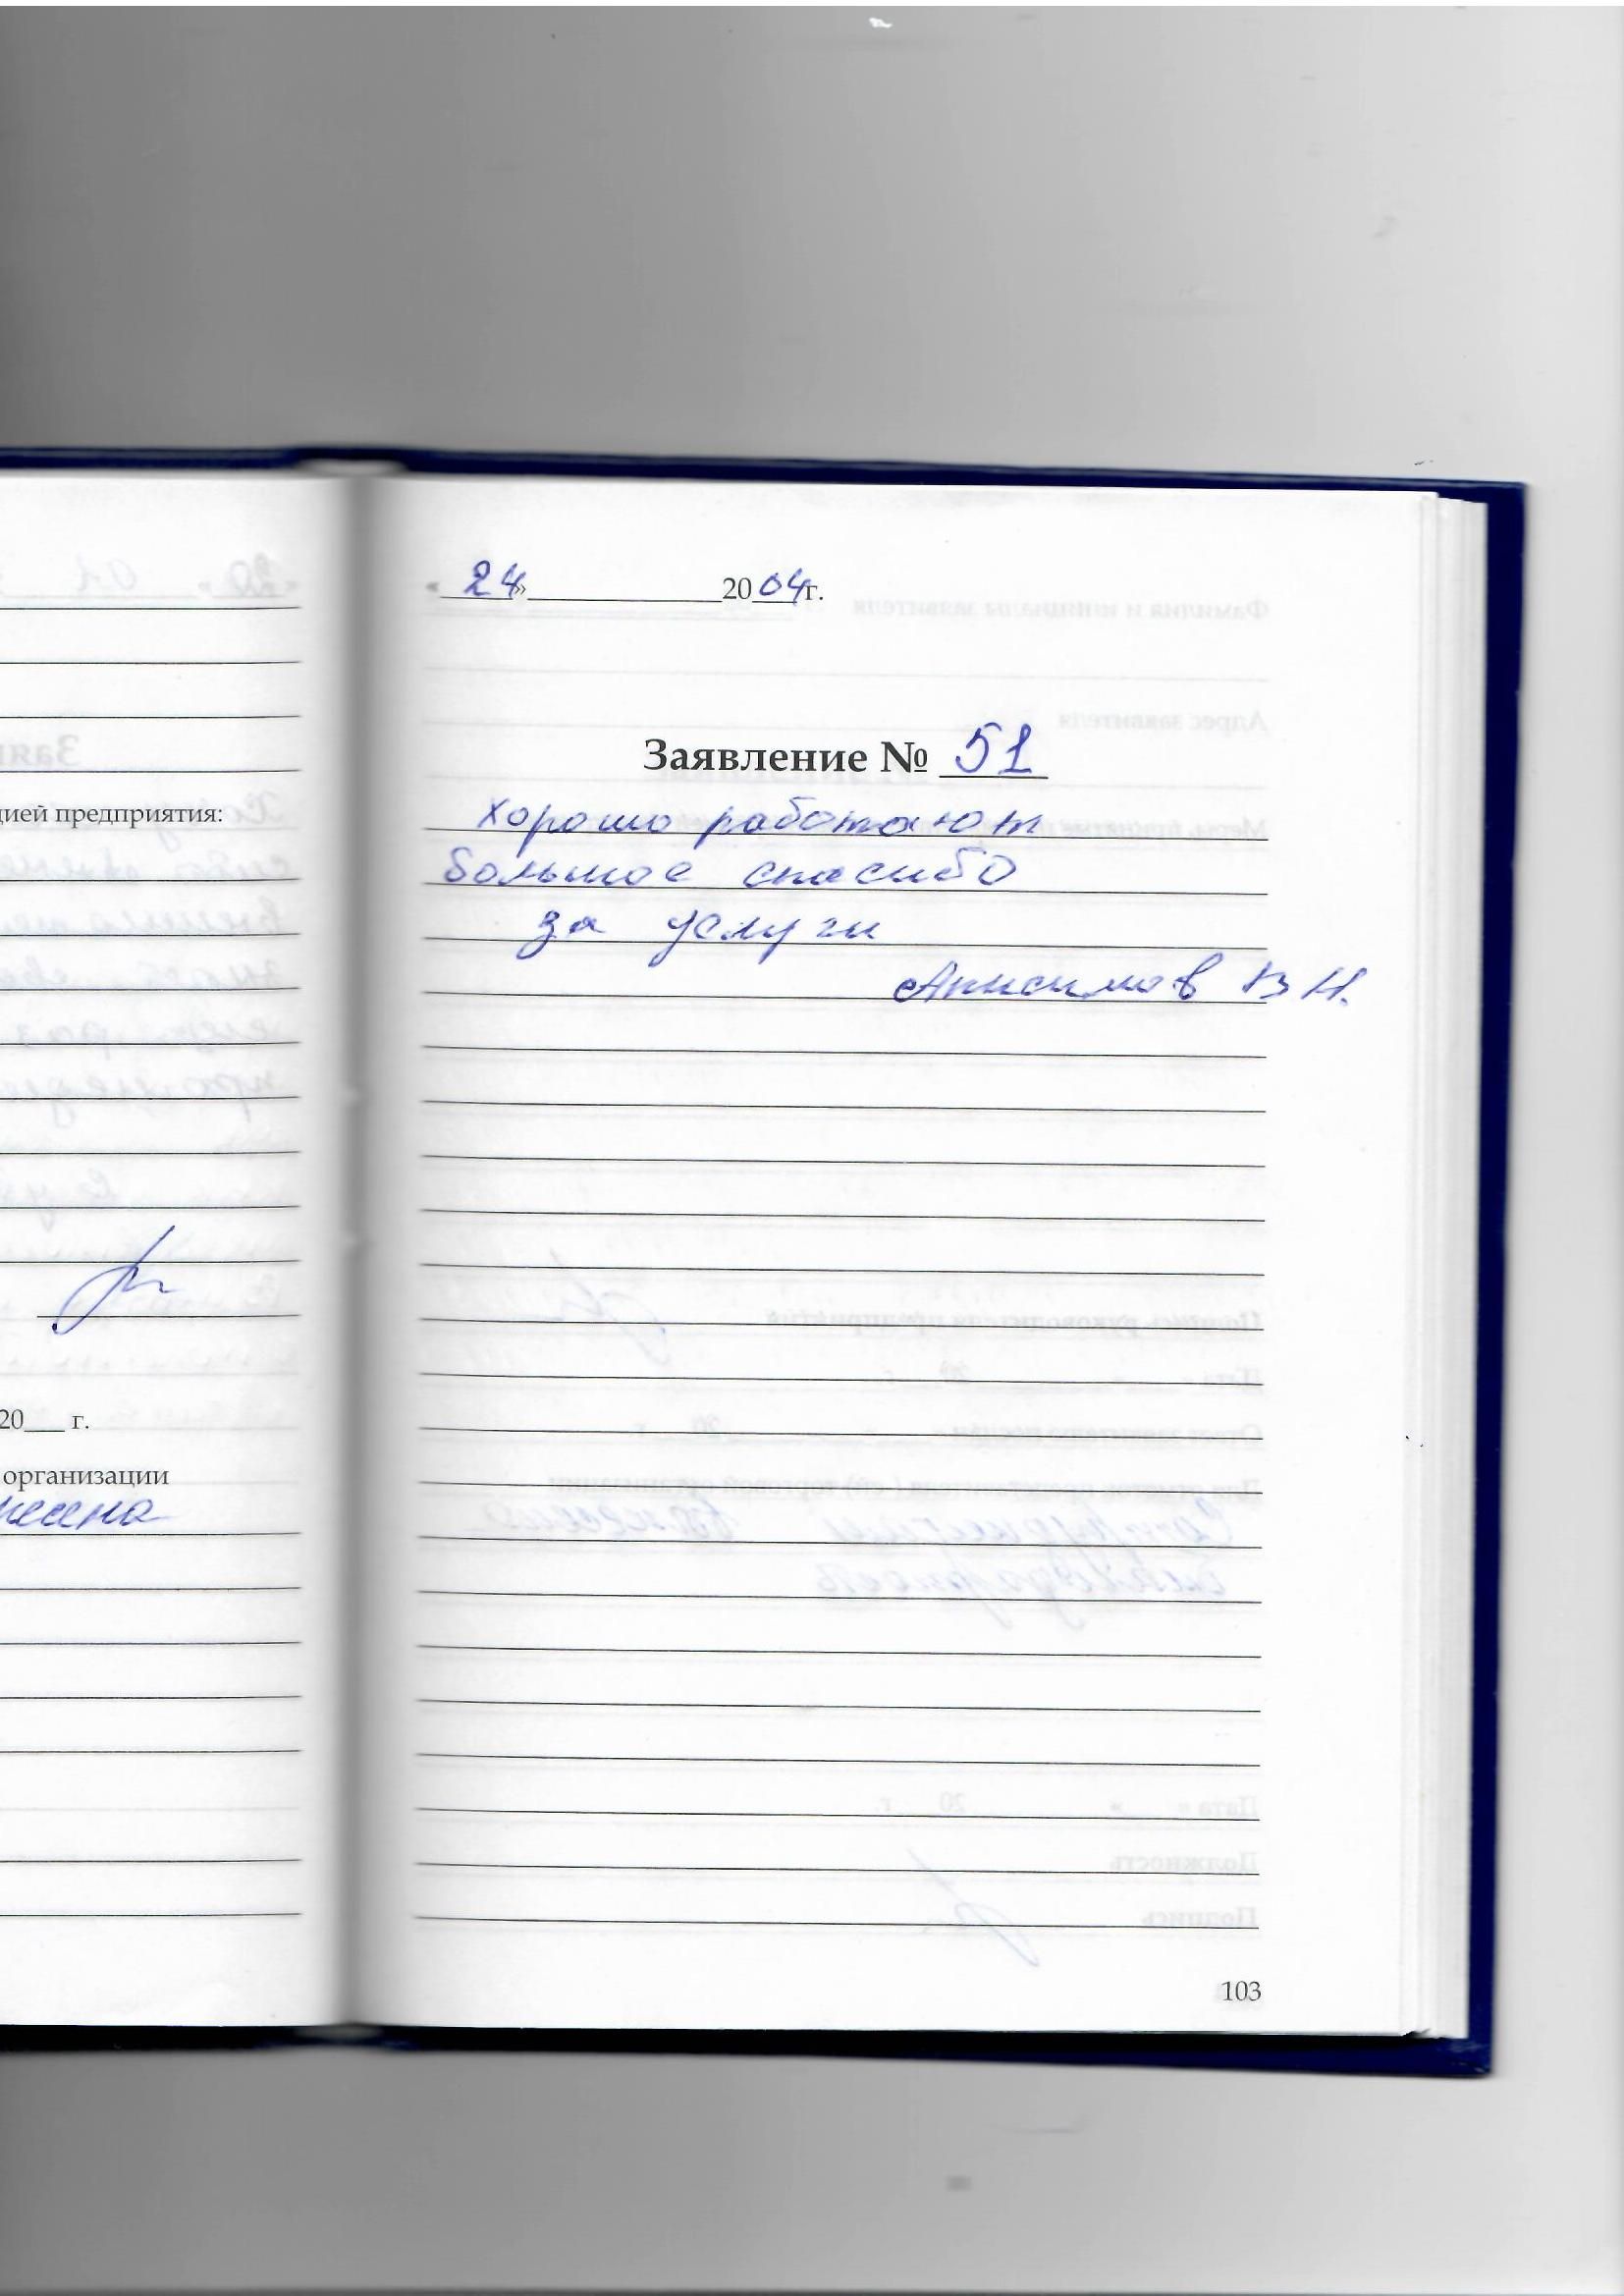 цией предприятия:
20___ г.
организации
«24»____________2004г.
Заявление № 51
Хорошо работают
большое спасибо
за услуги
Анисимов В Н.
103